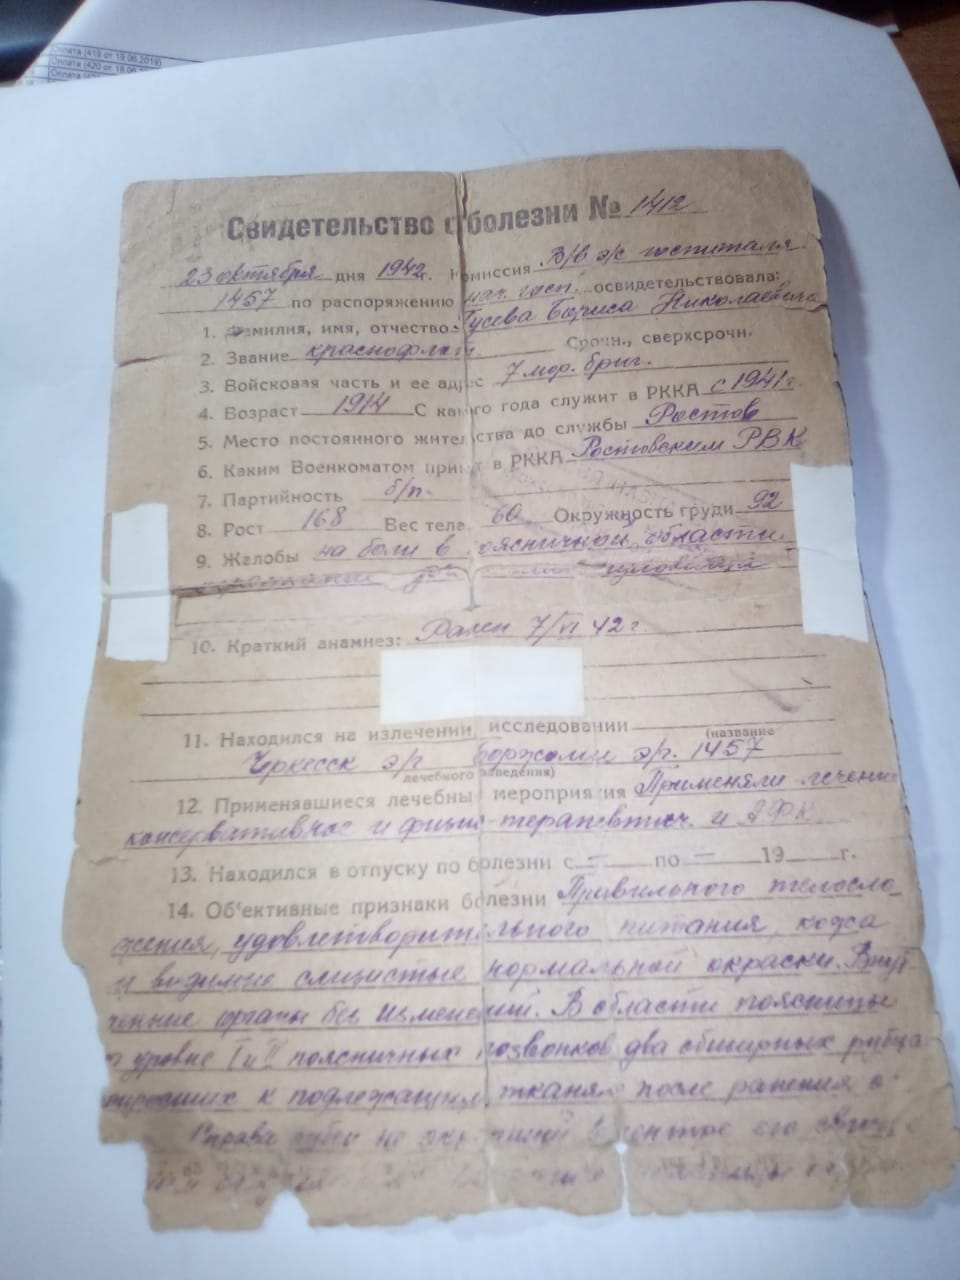 Оплата (419 от 19.06.2019)
Оплата (420 от 19.06.
Свидетельство о болезни № 1412
23 октября дня 1942 г. Комиссия В/в э/г госпиталя
1457 по распоряжению нач. госп. освидетельствовала:
1. Фамилия, имя, отчество Гусева Бориса Николаевича
2. Звание краснофлот. Срочн., сверхсрочн.
3. Войсковая часть и ее адрес 7 мор. бриг.
4. Возраст 1914 С какого года служит в РККА с 1941 г.
5. Место постоянного жительства до службы Ростов
6. Каким Военкоматом принят в РККА Ростовским РВК
7. Партийность б/п.
8. Рост 168 Вес тела 60 Окружность груди 92
9. Жалобы на боли в поясничной области
туловища
10. Краткий анамнез: Ранен 7/VI 42 г.
11. Находился на излечении, исследовании
(название
Черкесск э/г Боржоми э/г. 1457
лечебного заведения)
12. Применявшиеся лечебные мероприятия Применяли лечение
консервативное и физио-терапевтич. и ЛФК
13. Находился в отпуску по болезни с — по — 19 г.
14. Об'ективные признаки болезни Правильного телосло-
жения, удовлетворительного питания, кожа
и видимые слизистые нормальной окраски. Внут-
ренние органы без изменений. В области поясницы
уровне I и II поясничных позвонков два обширных рубца
к подлежащим тканям после ранения
Справа рубец не в центре его